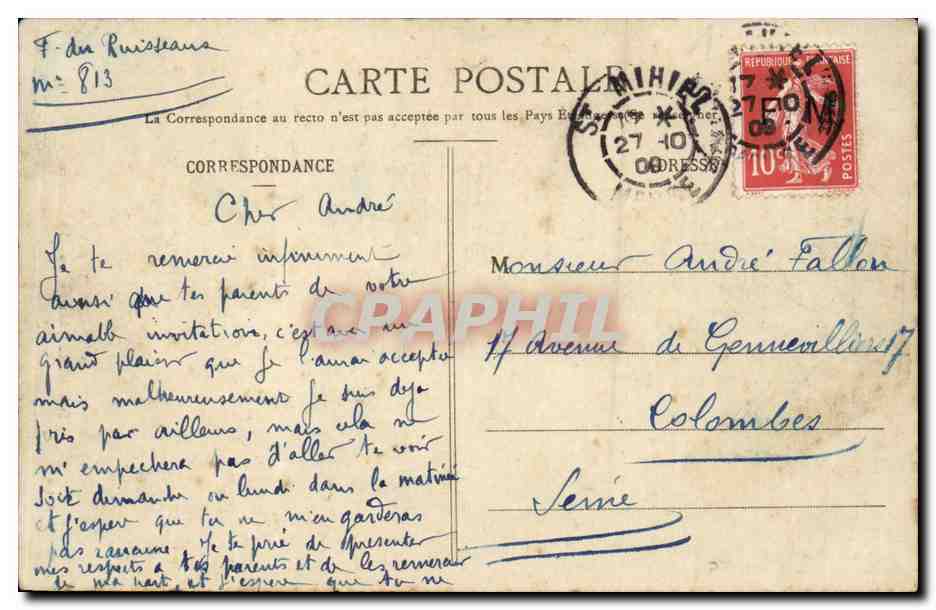 F. du Ruisseau
Mle 813
CARTE POSTALE
La Correspondance au recto n'est pas acceptée par tous les Pays
CORRESPONDANCE
ADRESSE
ST MIHIEL
17 *
27-10
09
REPUBLIQUE FRANÇAISE
10 c
POSTES
F M
Cher André
Je te remercie infiniment
ainsi que tes parents de votre
aimable invitation, c'est avec un
grand plaisir que je l'aurai acceptée
mais malheureusement je suis deja
pris par ailleurs, mais cela ne
m'empechera pas d'aller te voir
soit dimanche ou lundi dans la matinée
et j'espere que tu ne m'en garderas
pas rancune. Je te prie de presenter
mes respects a tes parents et de les remercier
de ma part, et j'espere que tu ne
Monsieur André Fallon
17 Avenue de Gennevilliers 17
Colombes
Seine
CPAPHIL